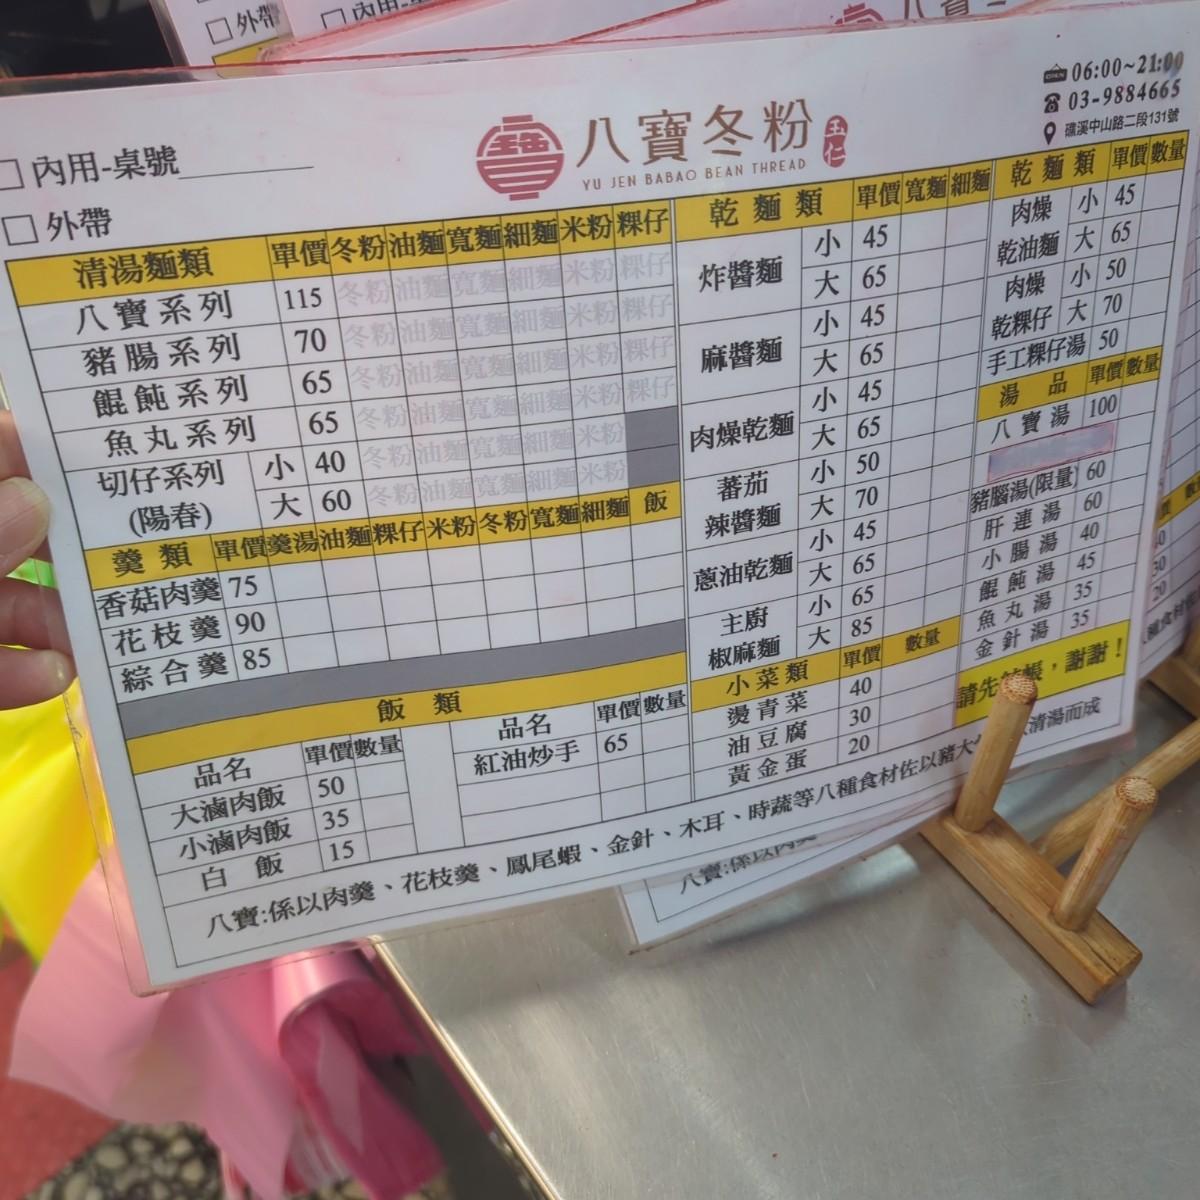 外帶
內用-桌
內用-桌號
外帶
八寶冬粉
玉仁
YU JEN BABAO BEAN THREAD
06:00~21:00
03-9884665
礁溪中山路二段131號
清湯麵類 單價 冬粉 油麵 寬麵 細麵 米粉 粿仔
八寶系列 115 冬粉 油麵 寬麵 細麵 米粉 粿仔
豬腸系列 70 冬粉 油麵 寬麵 細麵 米粉 粿仔
餛飩系列 65 冬粉 油麵 寬麵 細麵 米粉 粿仔
魚丸系列 65 冬粉 油麵 寬麵 細麵 米粉 粿仔
切仔系列 (陽春) 小 40 冬粉 油麵 寬麵 細麵 米粉
大 60 冬粉 油麵 寬麵 細麵 米粉
羹類 單價 羹湯 油麵 粿仔 米粉 冬粉 寬麵 細麵 飯
香菇肉羹 75
花枝羹 90
綜合羹 85
飯類
品名 單價 數量
大滷肉飯 50
小滷肉飯 35
白飯 15
品名 單價 數量
紅油炒手 65
乾麵類 單價 寬麵 細麵
炸醬麵 小 45
大 65
麻醬麵 小 45
大 65
肉燥乾麵 小 45
大 65
蕃茄辣醬麵 小 50
大 70
蔥油乾麵 小 45
大 65
主廚椒麻麵 小 65
大 85
小菜類 單價 數量
燙青菜 40
油豆腐 30
黃金蛋 20
乾麵類 單價 數量
肉燥乾油麵 小 45
大 65
肉燥乾粿仔 小 50
大 70
手工粿仔湯 50
湯品 單價 數量
八寶湯 100
豬腦湯(限量) 60
肝連湯 60
小腸湯 40
餛飩湯 45
魚丸湯 35
金針湯 35
請先結帳，謝謝！
八寶:係以肉羹、花枝羹、鳳尾蝦、金針、木耳、時蔬等八種食材佐以豬大 清湯而成
八寶:係以肉